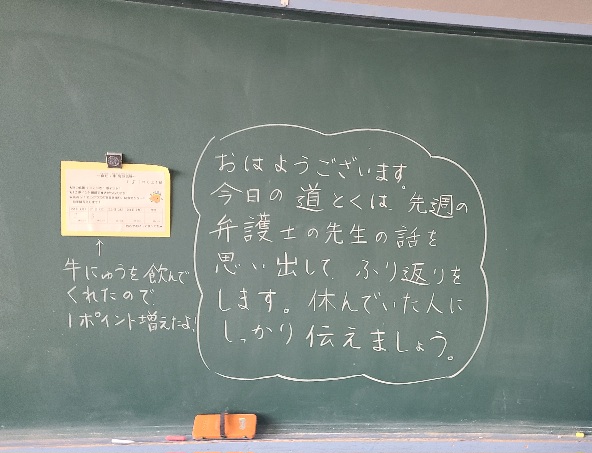 おはようございます。
今日の道とくは、先週の
弁護士の先生の話を
思い出して、ふり返りを
します。休んでいた人に
しっかり伝えましょう。
↑
牛にゅうを飲んで
くれたので
1ポイント増えたよ!